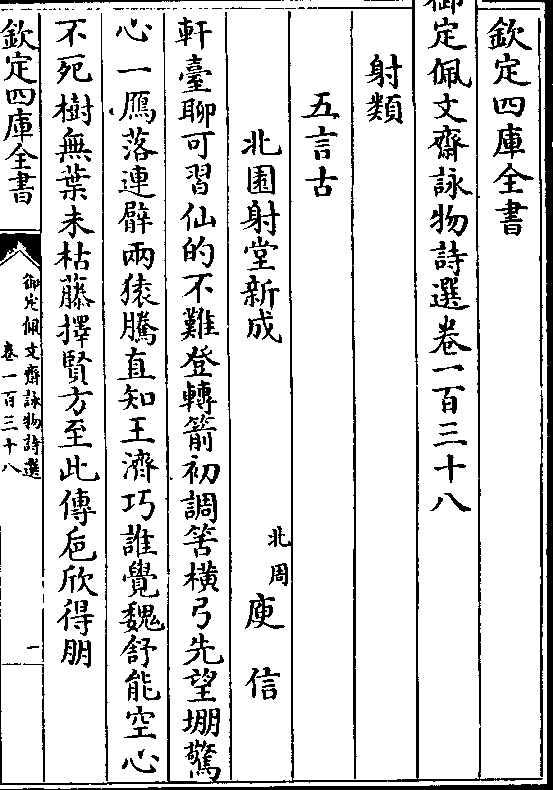 欽定四庫全書
御定佩文齋詠物詩選卷一百三十八
射類
五言古
北園射堂新成
北周
庾信
軒臺聊可習仙的不難登轉箭初調筈横弓先望堋驚
心一鴈落連臂兩猿騰直知王濟巧誰覺魏舒能空心
不死樹無葉未枯藤擇賢方至此傳巵欣得朋
欽定四庫全書
御定佩文齋詠物詩選
卷一百三十八
一